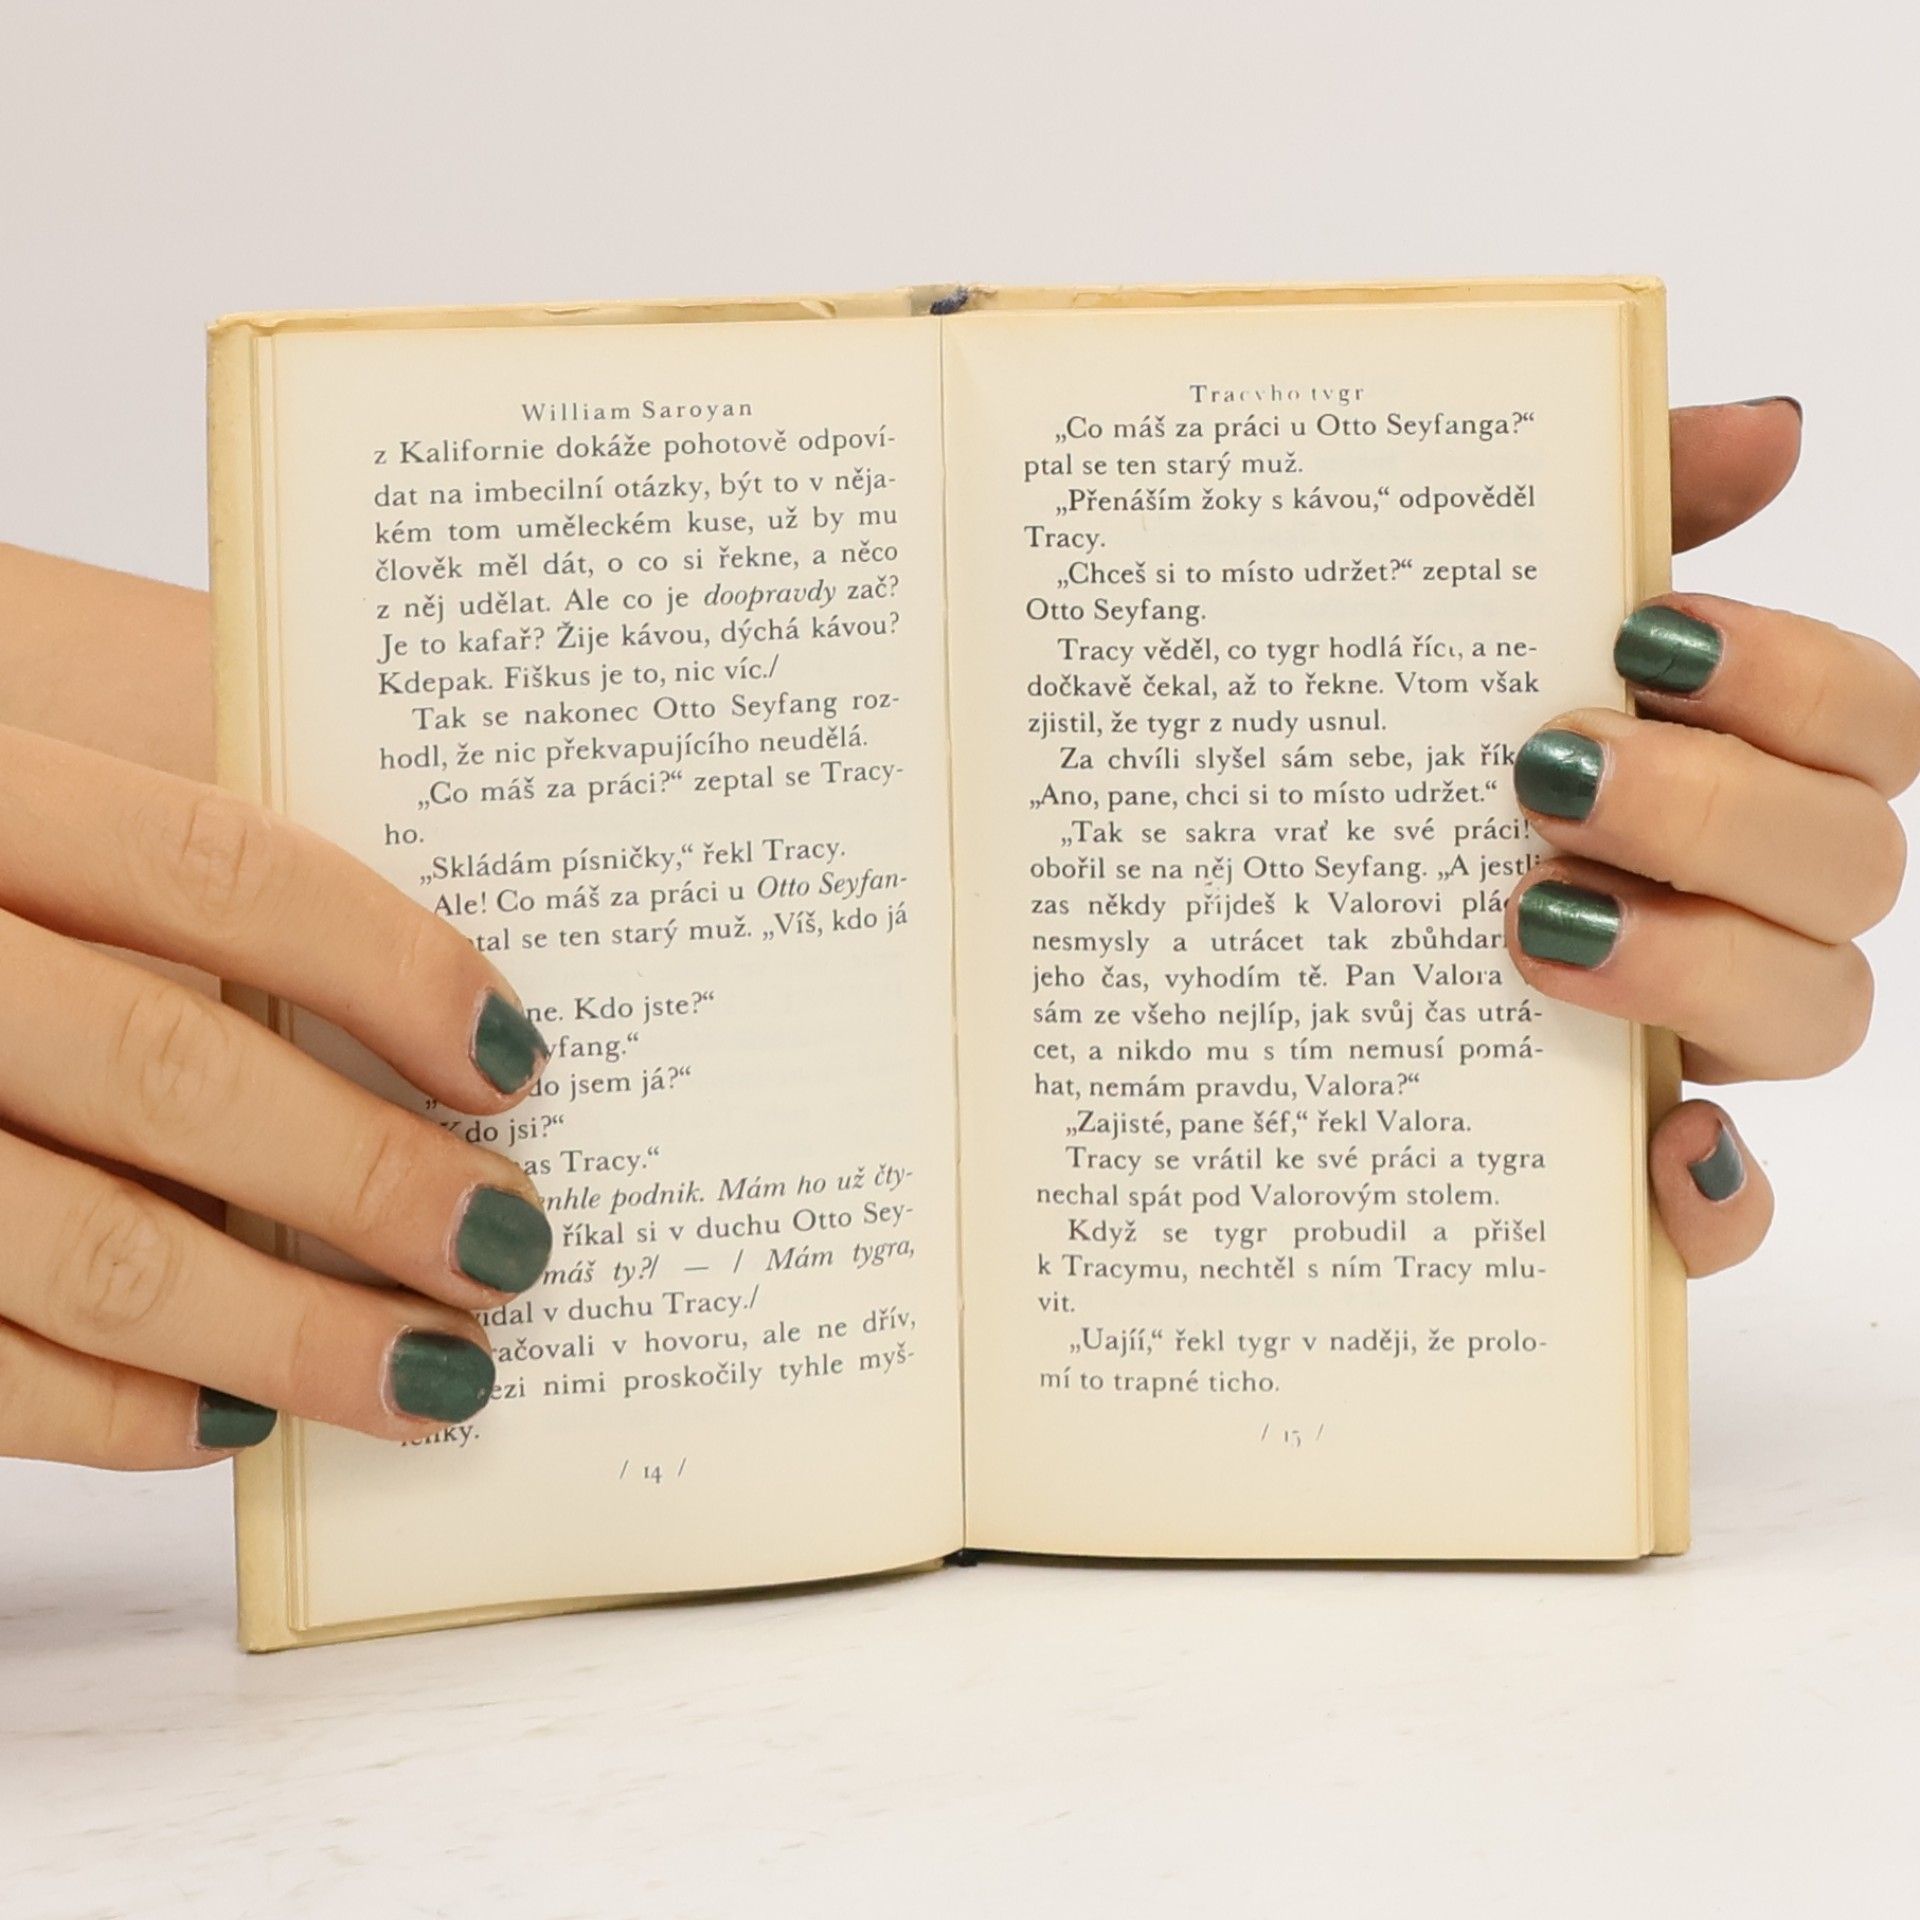 William Saroyan
z Kalifornie dokáže pohotově odpoví-
dat na imbecilní otázky, být to v něja-
kém tom uměleckém kuse, už by mu
člověk měl dát, o co si řekne, a něco
z něj udělat. Ale co je doopravdy zač?
Je to kafař? Žije kávou, dýchá kávou?
Kdepak. Fiškus je to, nic víc./
Tak se nakonec Otto Seyfang roz-
hodl, že nic překvapujícího neudělá.
„Co máš za práci?“ zeptal se Tracy-
ho.
„Skládám písničky,“ řekl Tracy.
Ale! Co máš za práci u Otto Seyfan-
se ten starý muž. „Víš, kdo já
Kdo jste?“
jsem já?“
Kdo jsi?“
Tracy.“
podnik. Mám ho už čty-
říkal si v duchu Otto Sey-
máš ty?/ — / Mám tygra,
v duchu Tracy./
v hovoru, ale ne dřív,
nimi proskočily tyhle myš-
/ 14 /
Tracyho tygr
„Co máš za práci u Otto Seyfanga?“
ptal se ten starý muž.
„Přenáším žoky s kávou,“ odpověděl
Tracy.
„Chceš si to místo udržet?“ zeptal se
Otto Seyfang.
Tracy věděl, co tygr hodlá říci, a ne-
dočkavě čekal, až to řekne. Vtom však
zjistil, že tygr z nudy usnul.
Za chvíli slyšel sám sebe, jak
„Ano, pane, chci si to místo udržet.“
„Tak se sakra vrať ke své práci!
obořil se na něj Otto Seyfang. „A jestli
zas někdy přijdeš k Valorovi
nesmysly a utrácet tak
jeho čas, vyhodím tě. Pan Valora
sám ze všeho nejlíp, jak svůj čas utrá-
cet, a nikdo mu s tím nemusí pomá-
hat, nemám pravdu, Valora?“
„Zajisté, pane šéf,“ řekl Valora.
Tracy se vrátil ke své práci a tygra
nechal spát pod Valorovým stolem.
Když se tygr probudil a přišel
k Tracymu, nechtěl s ním Tracy mlu-
vit.
„Uajíí,“ řekl tygr v naději, že prolo-
mí to trapné ticho.
/ 15 /